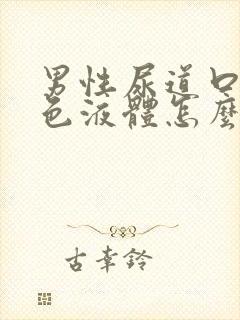 男性尿道口
色液體怎麼
古幸鈴